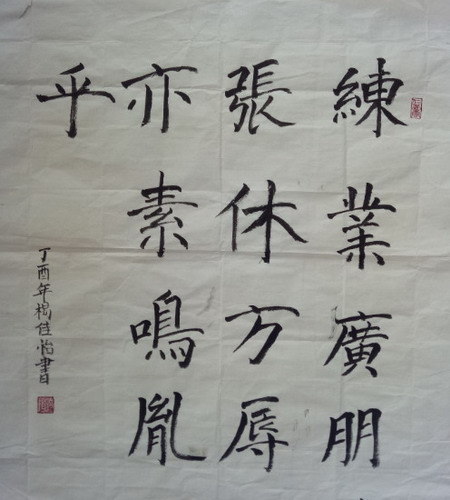 練業廣朋
張休方辱
亦素鳴胤
乎
丁酉年楊佳怡書